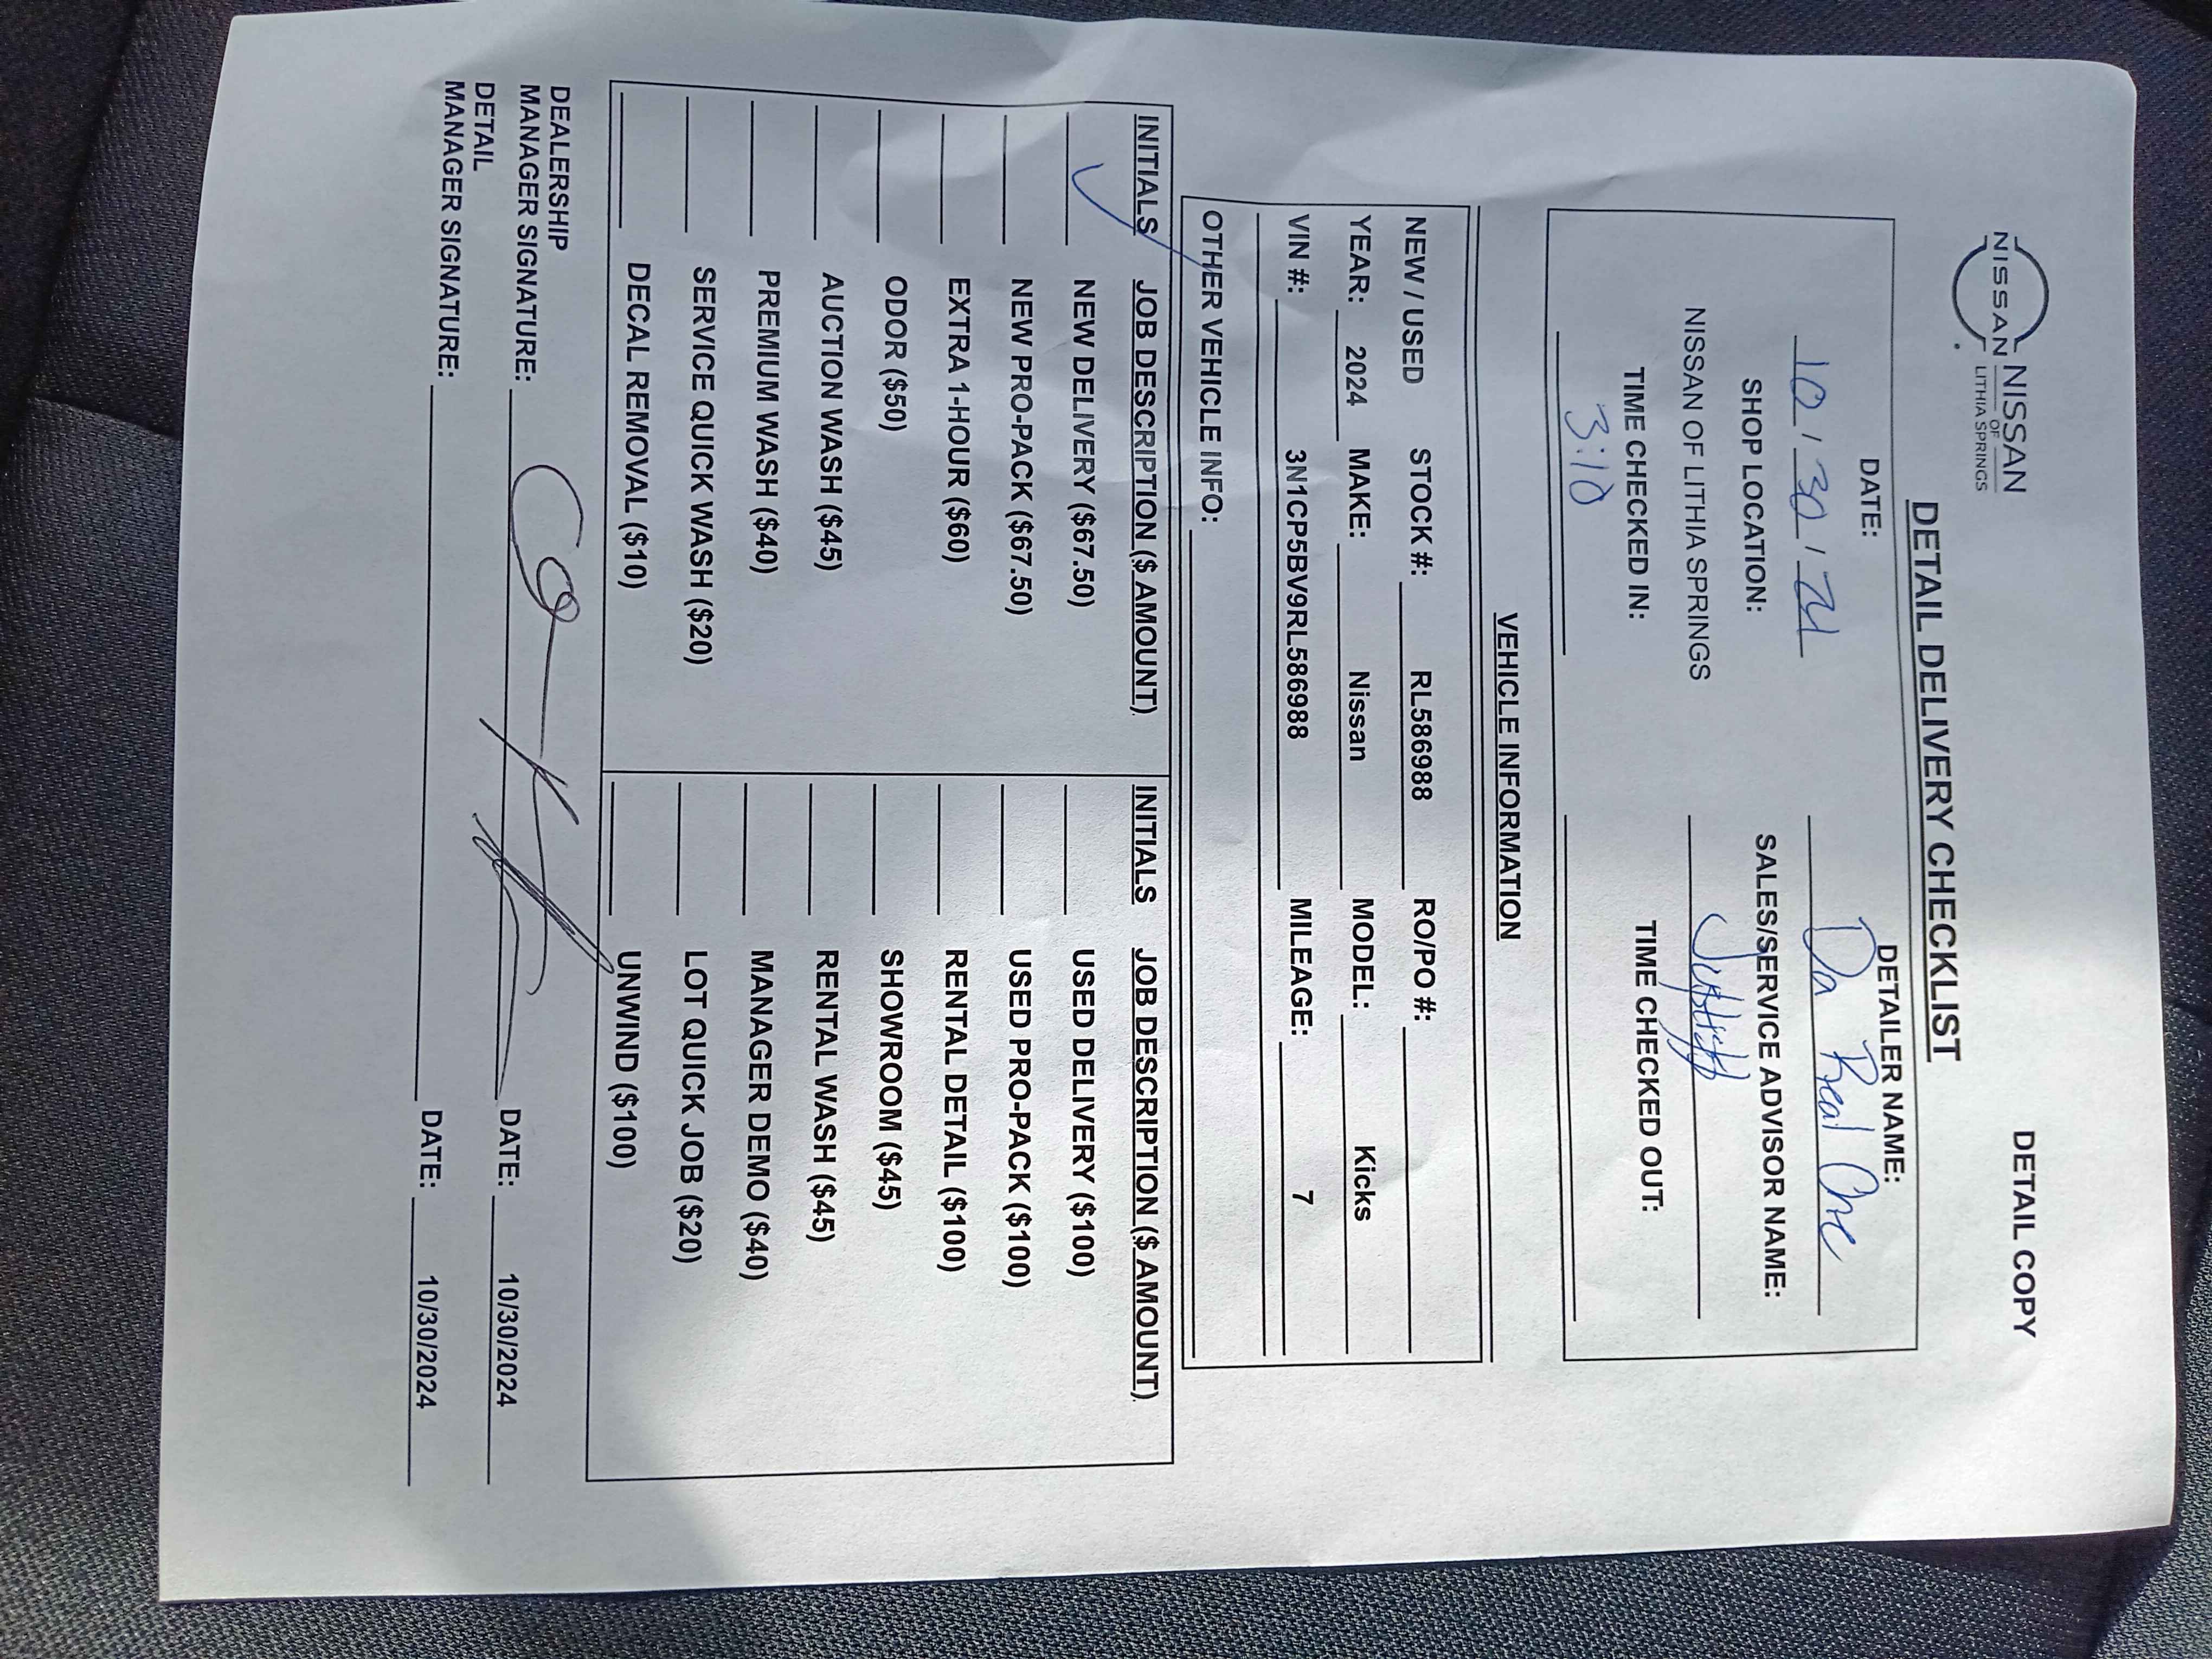 NISSAN
NISSAN
OF
LITHIA SPRINGS
DETAIL COPY
DETAIL DELIVERY CHECKLIST
DATE: DETAILER NAME:
10 / 30 / 24 Da Real One
SHOP LOCATION: SALES/SERVICE ADVISOR NAME:
NISSAN OF LITHIA SPRINGS
TIME CHECKED IN: TIME CHECKED OUT:
3:10
VEHICLE INFORMATION
NEW / USED STOCK #: RL586988 RO/PO #:
YEAR: 2024 MAKE: Nissan MODEL: Kicks
VIN #: 3N1CP5BV9RL586988 MILEAGE: 7
OTHER VEHICLE INFO:
INITIALS JOB DESCRIPTION ($ AMOUNT) INITIALS JOB DESCRIPTION ($ AMOUNT)
NEW DELIVERY ($67.50) USED DELIVERY ($100)
NEW PRO-PACK ($67.50) USED PRO-PACK ($100)
EXTRA 1-HOUR ($60) RENTAL DETAIL ($100)
ODOR ($50) SHOWROOM ($45)
AUCTION WASH ($45) RENTAL WASH ($45)
PREMIUM WASH ($40) MANAGER DEMO ($40)
SERVICE QUICK WASH ($20) LOT QUICK JOB ($20)
DECAL REMOVAL ($10) UNWIND ($100)
DEALERSHIP
MANAGER SIGNATURE: DATE: 10/30/2024
DETAIL
MANAGER SIGNATURE: DATE: 10/30/2024